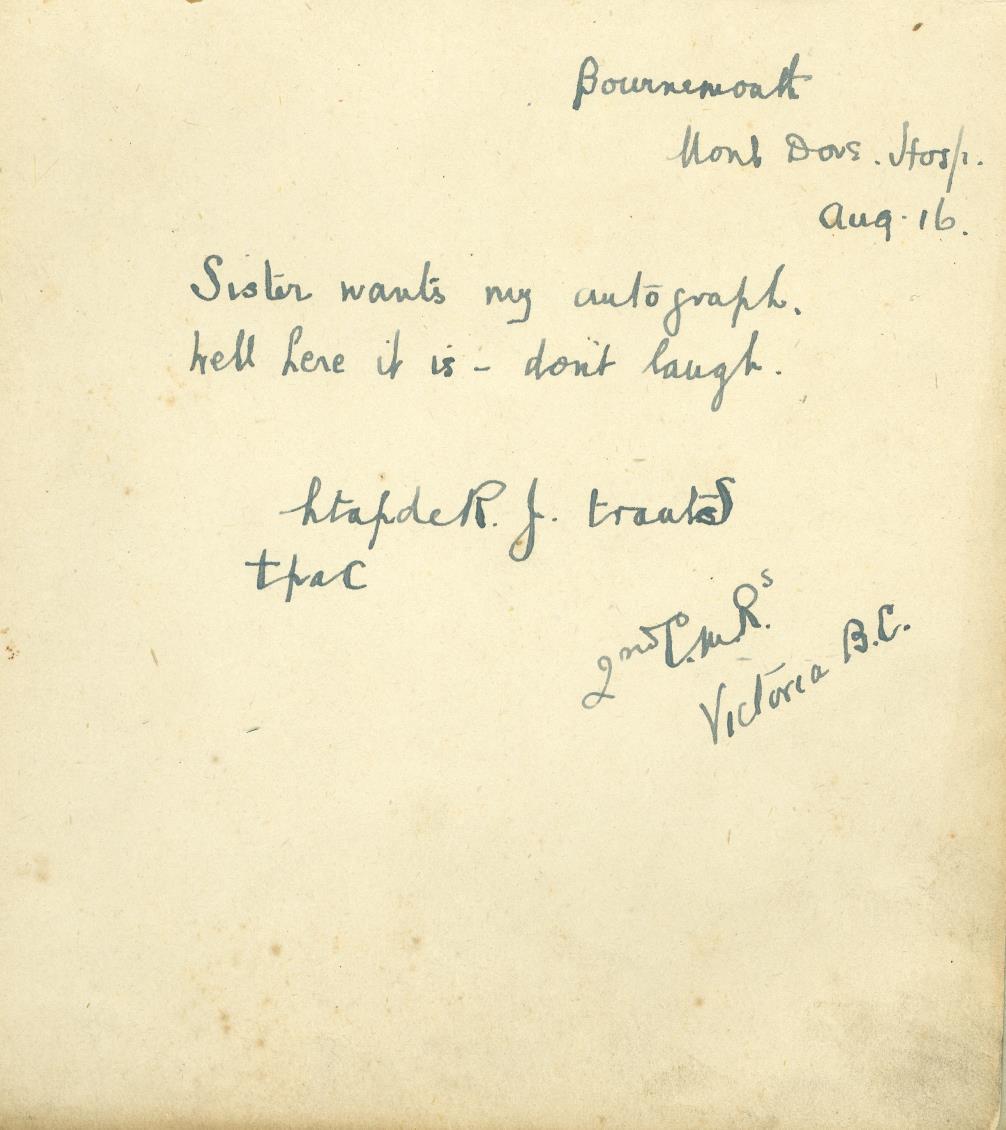 Bournemouth
Mont Dore. Hosp.
Aug. 16.
Sister wants my autograph.
Well here it is - don't laugh.
htapdeR. J. trautS
tpaC
2nd C.M.R.s
Victoria B.C.